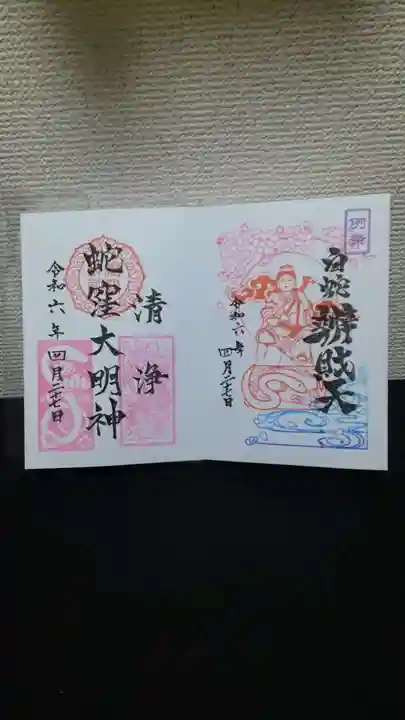 例祭
白蛇辨財天
令和六年四月二十七日
清浄
蛇窪大明神
令和六年四月二十七日